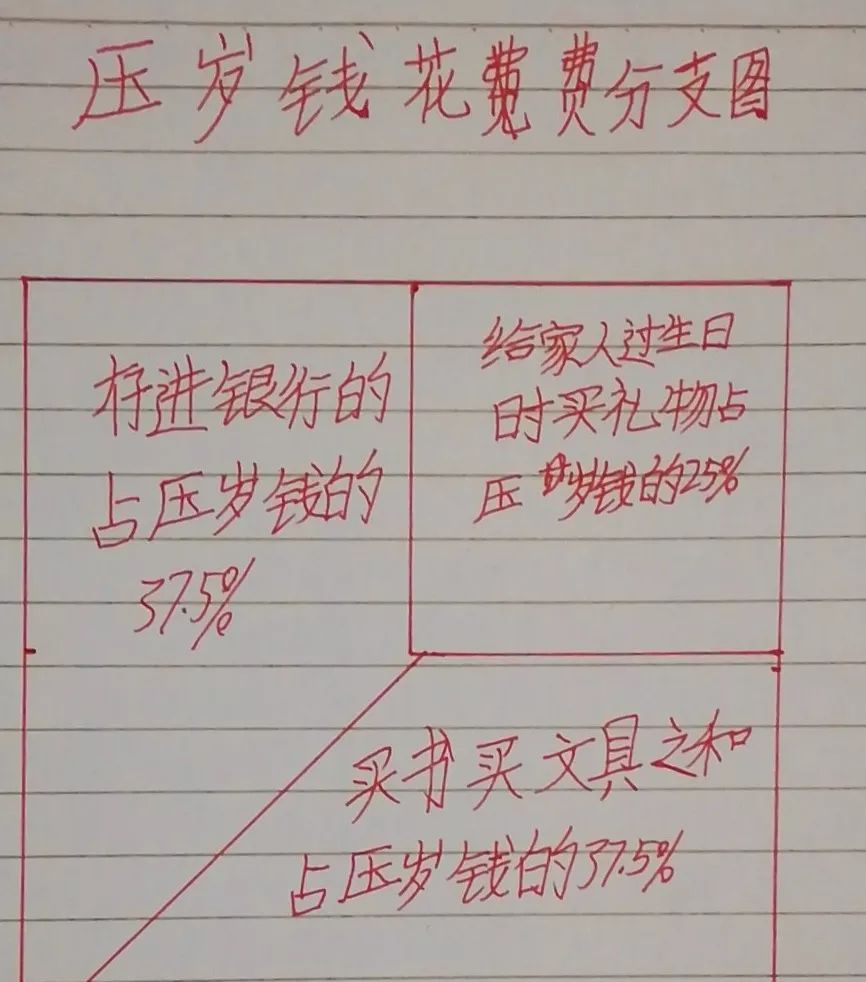 压岁钱花费费分支图
存进银行的
占压岁钱的
37.5%
给家人过生日
时买礼物占
压岁钱的25%
买书买文具之和
占压岁钱的37.5%